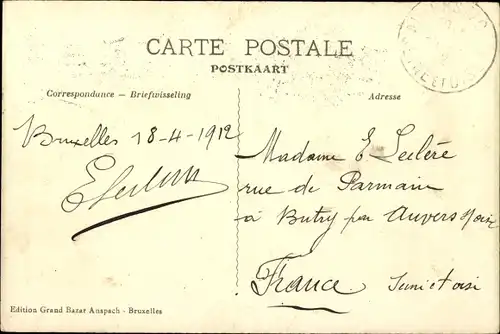 CARTE POSTALE
POSTKAART
Correspondance — Briefwisseling
Adresse
Bruxelles 18-4-1912
Madame E Leclère
rue de Parmain
à Butry par Auvers s/oise
France Seine et oise
Edition Grand Bazar Anspach - Bruxelles